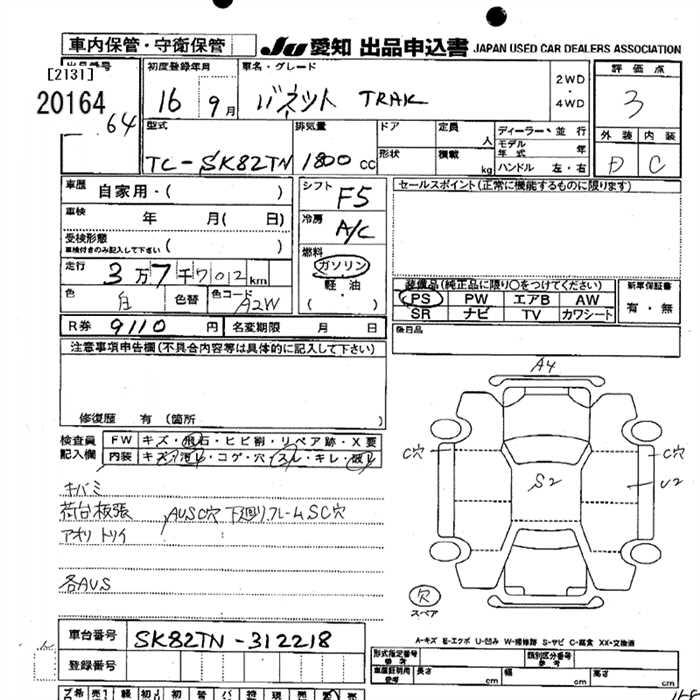 車内保管・守衛保管
JU 愛知 出品申込書 JAPAN USED CAR DEALERS ASSOCIATION
出品番号 初度登録年月 車名・グレード 評価点
[2131]
20164
64
16 9月 バネット TRAK
2WD
・
4WD
3
型式 排気量 ドア 定員 人 ディーラー・並行 外装 内装
モデル年式 年
形状 積載 kg ハンドル 左・右
TC-SK82TN 1800 CC D C
車歴 自家用・( ) シフト F5 セールスポイント(正常に機能するものに限ります)
車検 年 月( 日) 冷房 A/C
受検形態
車検付きのみ記入して下さい ( )
燃料 ガソリン
軽油
・( )
走行 3万7千7012km
色 白 色替 色コード A2W
装備品(純正品に限り○をつけてください) 新車保証書
PS PW エアB AW 有・無
SR ナビ TV カワシート
R券 9110 円 名変期限 月 日
後日品
注意事項申告欄(不具合内容等は具体的に記入して下さい)
修復歴 有(箇所 )
検査員記入欄 FW キズ・飛石・ヒビ割・リペア跡・X要
内装 キズ・汚レ・コゲ・穴・スレ・キレ・破レ
キバミ
荷台板張 AUSC穴 下廻リフレームSC穴
アオリ トソイ
各AUS
A4
C穴 C穴
S2 U2
欠
スペア
車台番号 SK82TN-312218
登録番号
A-キズ E-エクボ U-凹み W-補修跡 S-サビ C-腐食 XX-交換済
形式指定番号
※参考 類別区分番号
※参考
車庫証明用
※参考 長さ cm 幅 cm 高さ cm